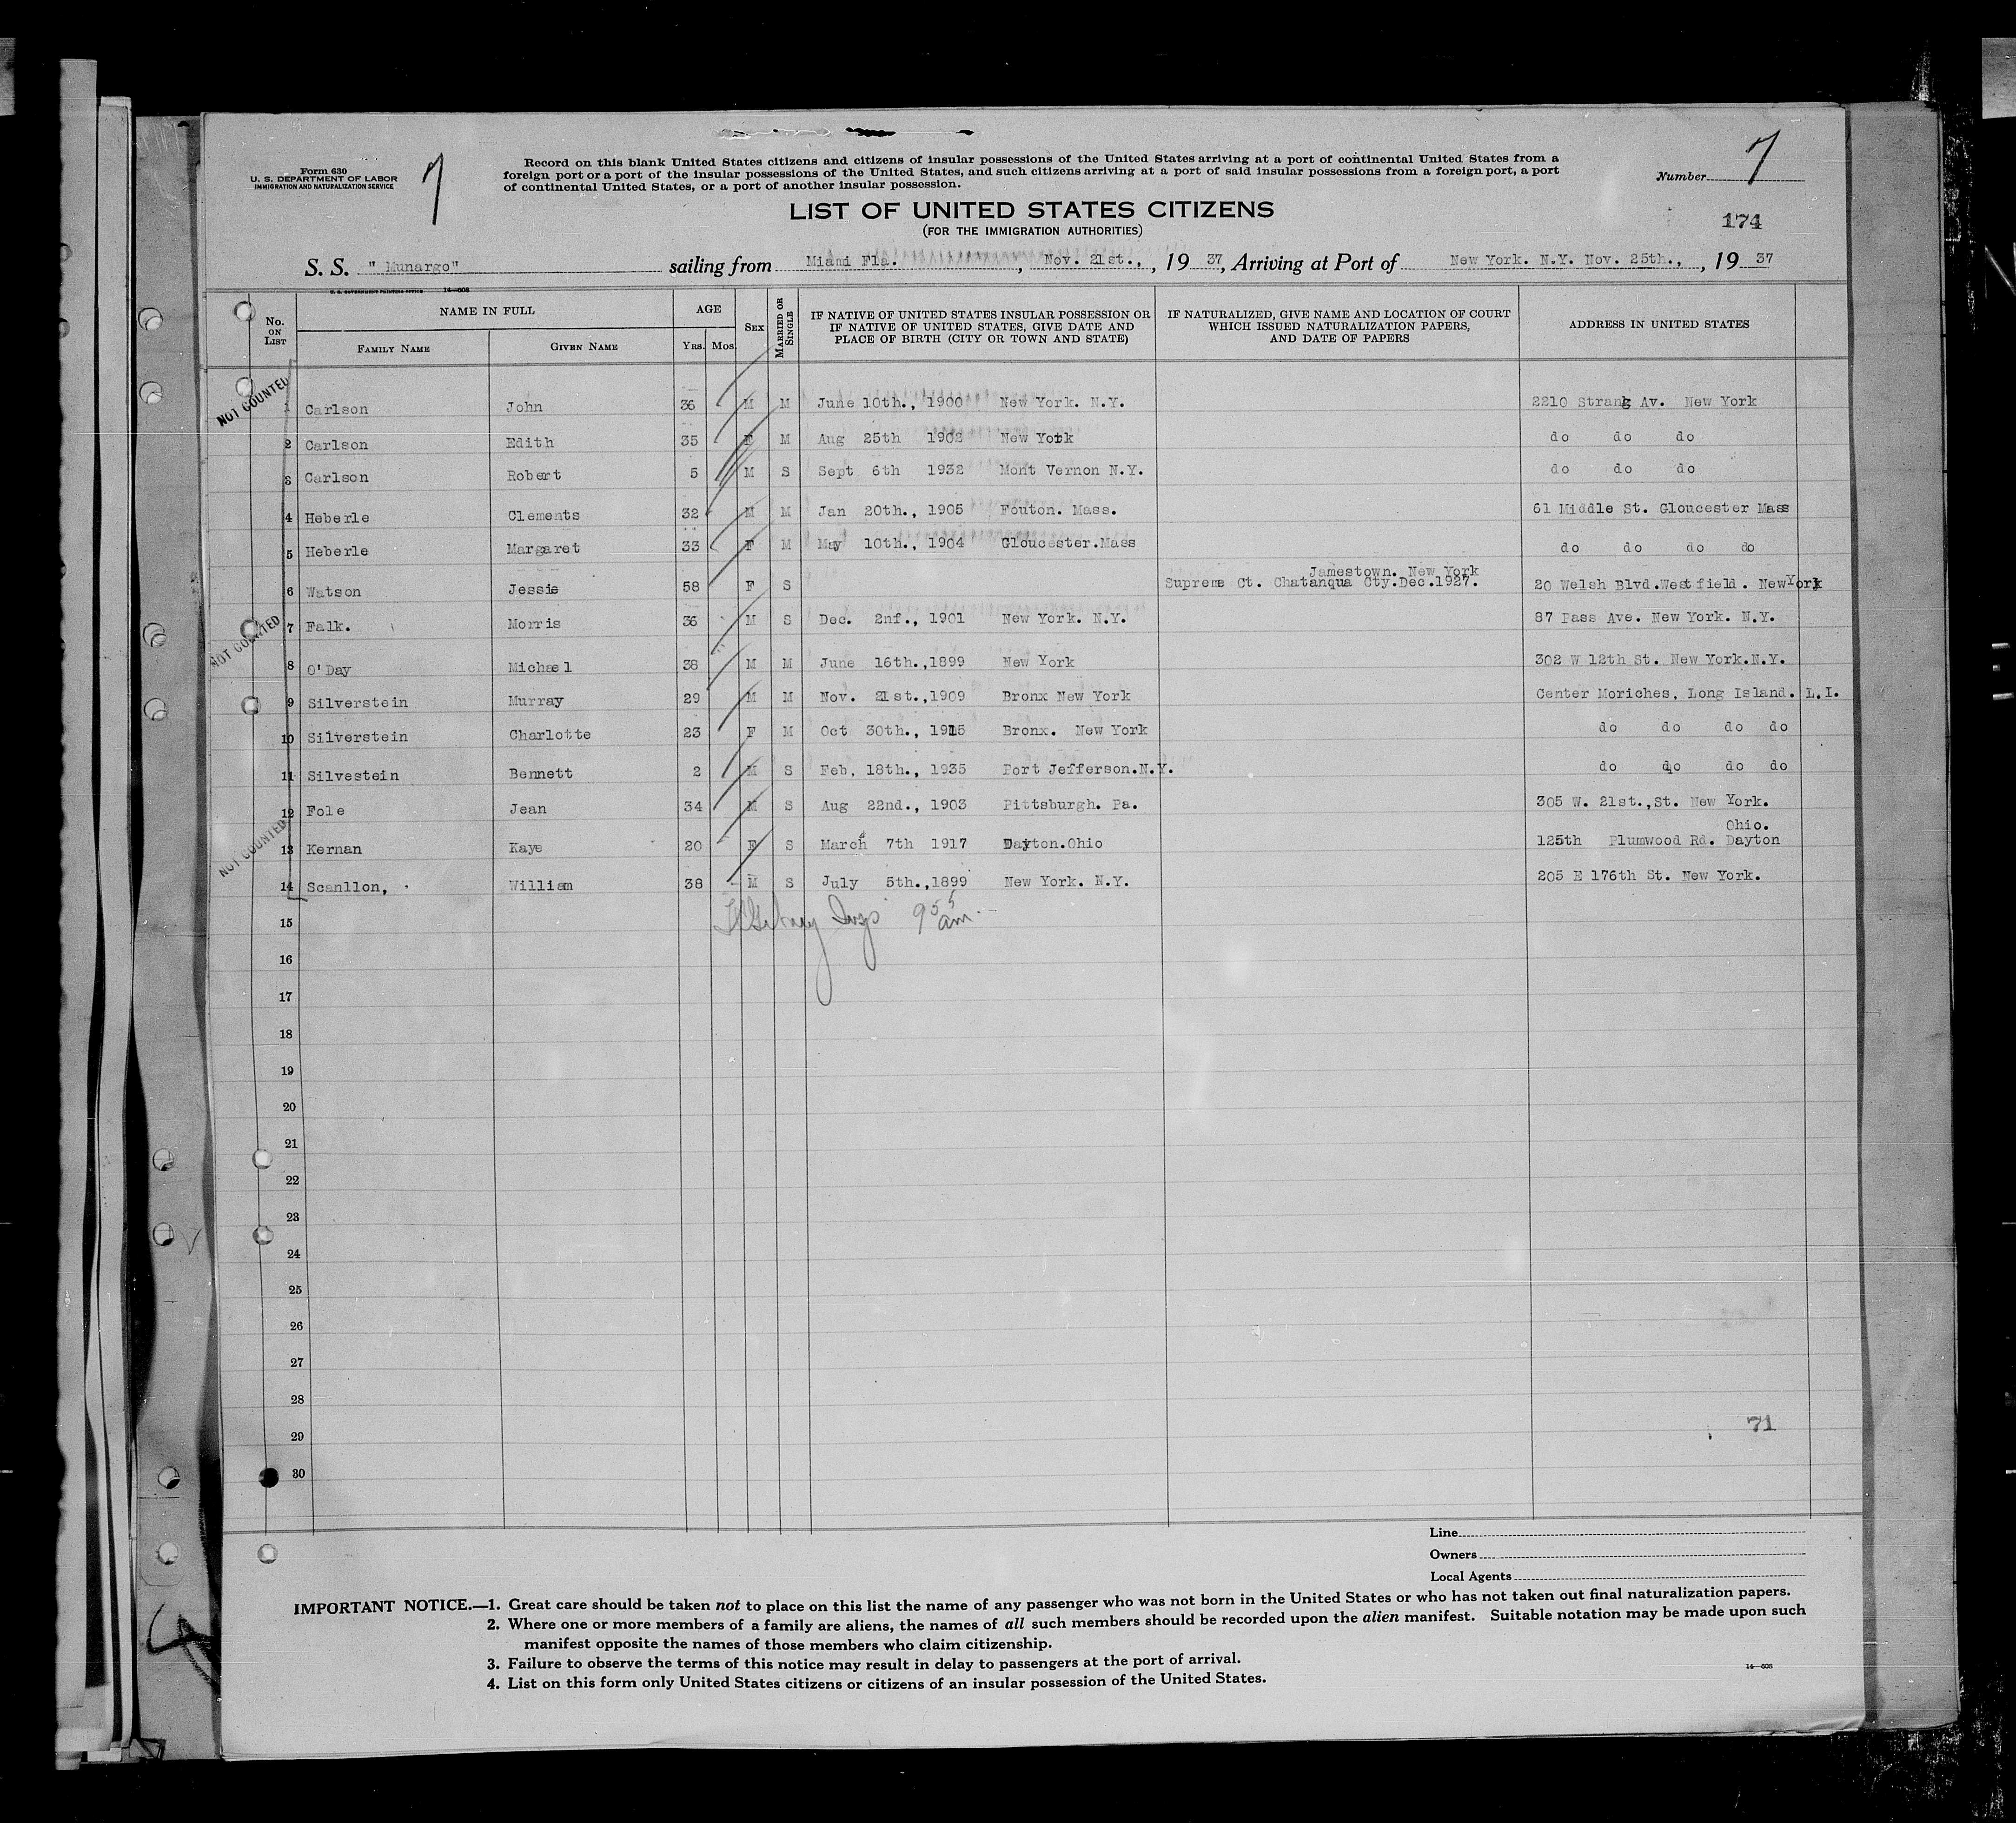 Form 630
U. S. DEPARTMENT OF LABOR
IMMIGRATION AND NATURALIZATION SERVICE
7
Record on this blank United States citizens and citizens of insular possessions of the United States arriving at a port of continental United States from a
foreign port or a port of the insular possessions of the United States, and such citizens arriving at a port of said insular possessions from a foreign port, a port
of continental United States, or a port of another insular possession.
Number 7
LIST OF UNITED STATES CITIZENS
(FOR THE IMMIGRATION AUTHORITIES)
174
S. S. " Munargo" sailing from Miami Fla. , Nov. 21st., , 19 37, Arriving at Port of New York. N.Y. Nov. 25th., , 19 37
U. S. GOVERNMENT PRINTING OFFICE 14—608
No. ON LIST
NAME IN FULL
FAMILY NAME GIVEN NAME
AGE
YRS. MOS.
SEX
MARRIED OR SINGLE
IF NATIVE OF UNITED STATES INSULAR POSSESSION OR
IF NATIVE OF UNITED STATES, GIVE DATE AND
PLACE OF BIRTH (CITY OR TOWN AND STATE)
IF NATURALIZED, GIVE NAME AND LOCATION OF COURT
WHICH ISSUED NATURALIZATION PAPERS,
AND DATE OF PAPERS
ADDRESS IN UNITED STATES
NOT COUNTED
1 Carlson John 36 M M June 10th., 1900 New York. N.Y. 2210 Strang Av. New York
2 Carlson Edith 35 F M Aug 25th 1902 New York do do do
3 Carlson Robert 5 M S Sept 6th 1932 Mont Vernon N.Y. do do do
4 Heberle Clements 32 M M Jan 20th., 1905 Fouton. Mass. 61 Middle St. Gloucester Mass
5 Heberle Margaret 33 F M May 10th., 1904 Gloucester.Mass do do do do
Jamestown. New York
6 Watson Jessie 58 F S Supreme Ct. Chatanqua Cty.Dec.1927. 20 Welsh Blvd.Westfield. NewYork
NOT COUNTED
7 Falk. Morris 36 M S Dec. 2nf., 1901 New York. N.Y. 87 Pass Ave. New York. N.Y.
8 O'Day Michael 38 M M June 16th.,1899 New York 302 W 12th St. New York.N.Y.
9 Silverstein Murray 29 M M Nov. 21st.,1909 Bronx New York Center Moriches, Long Island. L.I.
10 Silverstein Charlotte 23 F M Oct 30th., 1915 Bronx. New York do do do do
11 Silvestein Bennett 2 M S Feb, 18th., 1935 Port Jefferson.N.Y. do do do do
12 Fole Jean 34 M S Aug 22nd., 1903 Pittsburgh. Pa. 305 W. 21st.,St. New York.
NOT COUNTED
Ohio.
13 Kernan Kaye 20 F S March 7th 1917 Dayton.Ohio 125th Plumwood Rd. Dayton
14 Scanllon, William 38 M S July 5th.,1899 New York. N.Y. 205 E 176th St. New York.
15 9 55 am.
16
17
18
19
20
21
22
23
24
25
26
27
28
71
29
30
Line
Owners
Local Agents
IMPORTANT NOTICE.—1. Great care should be taken not to place on this list the name of any passenger who was not born in the United States or who has not taken out final naturalization papers.
2. Where one or more members of a family are aliens, the names of all such members should be recorded upon the alien manifest. Suitable notation may be made upon such
manifest opposite the names of those members who claim citizenship.
3. Failure to observe the terms of this notice may result in delay to passengers at the port of arrival.
4. List on this form only United States citizens or citizens of an insular possession of the United States.
14—608